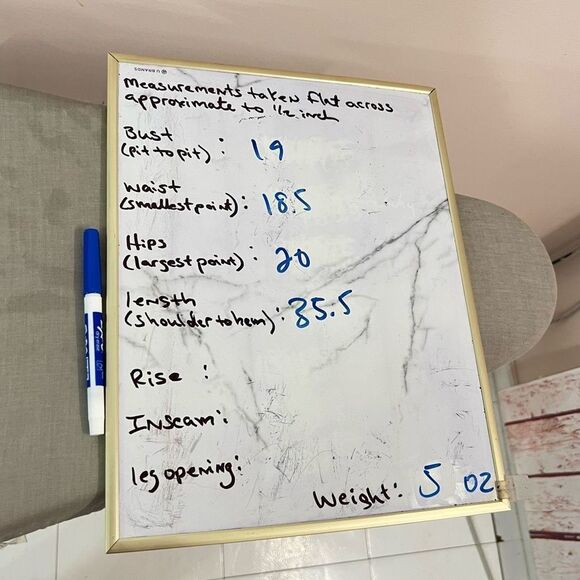 U BRANDS
Measurements taken flat across
approximate to 1/2 inch
Bust
(pit to pit) : 19
waist
(smallest point) : 18.5
Hips
(largest point) : 20
length
(shoulder to hem) : 35.5
Rise :
Inseam :
leg opening :
Weight : 5 oz